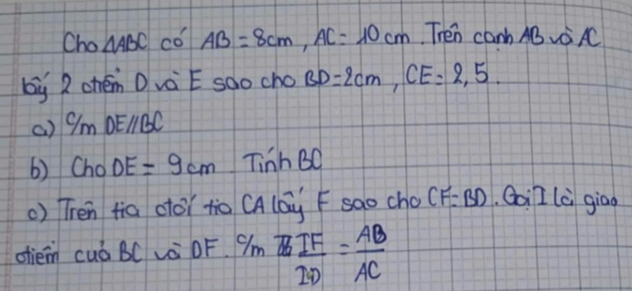 Cho ΔABC có AB = 8cm, AC = 10 cm. Trên cạnh AB và AC
lấy 2 điểm D và E sao cho BD = 2cm, CE = 2,5.
a) C/m DE // BC
b) Cho DE = 9cm Tính BC
c) Trên tia đối tia CA lấy F sao cho CF = BD. Gọi I là giao
điểm của BC và DF. C/m IF/ID = AB/AC